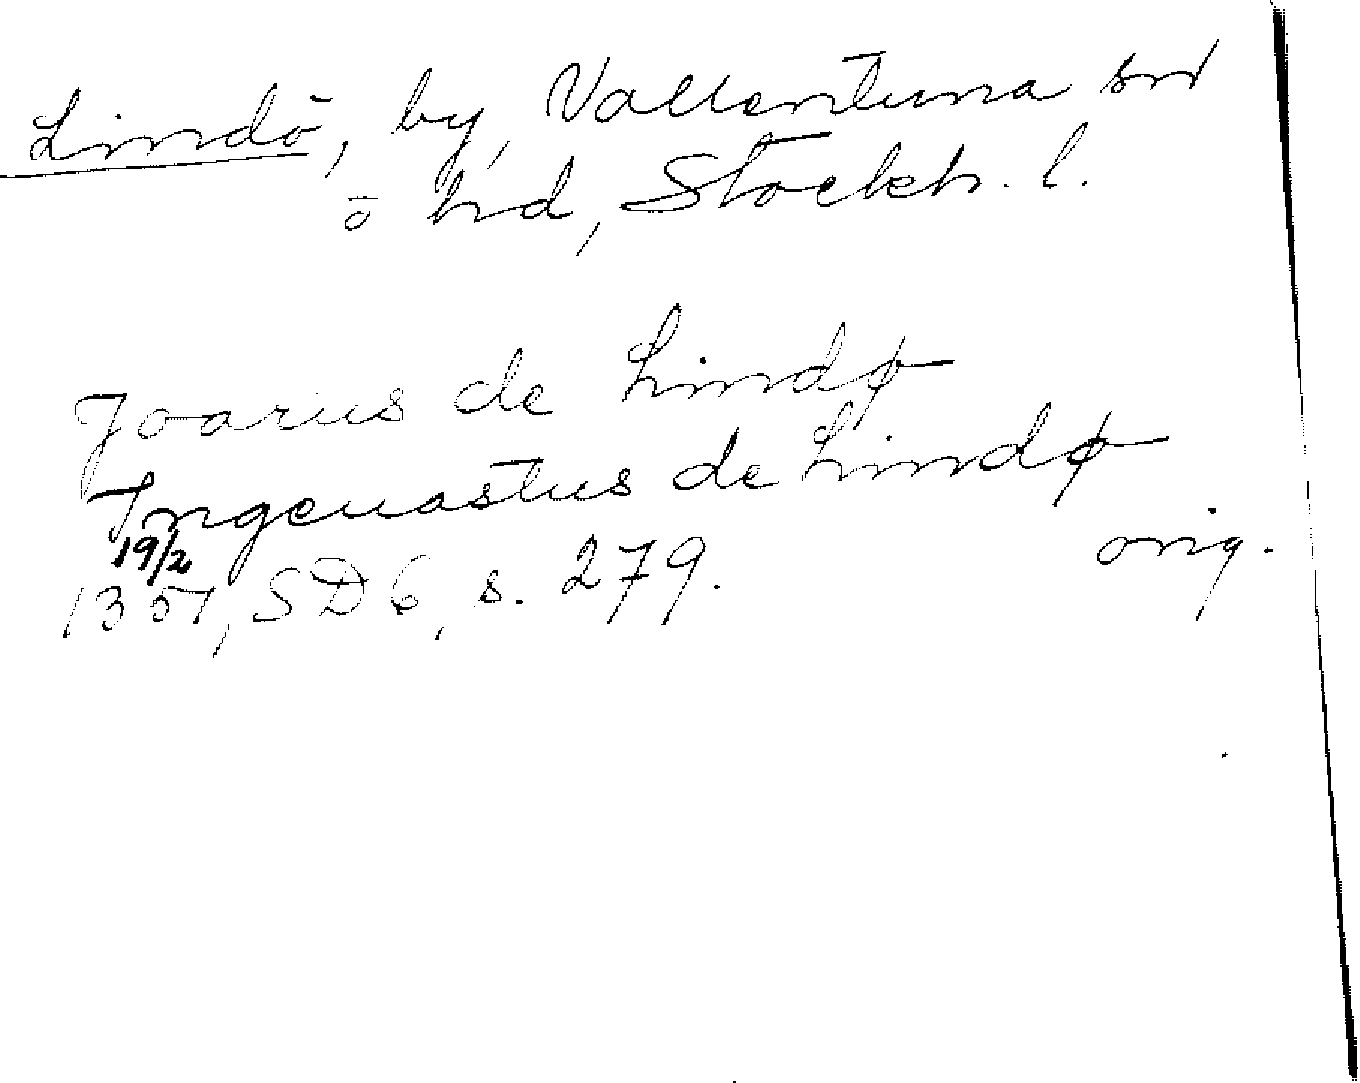 Lindö, by, Vallentuna sn
o hd, Stockh. l.
Joarius de Lindø
Ingeuastus de Lindø
19/2
1351, SD 6, s. 279. orig.